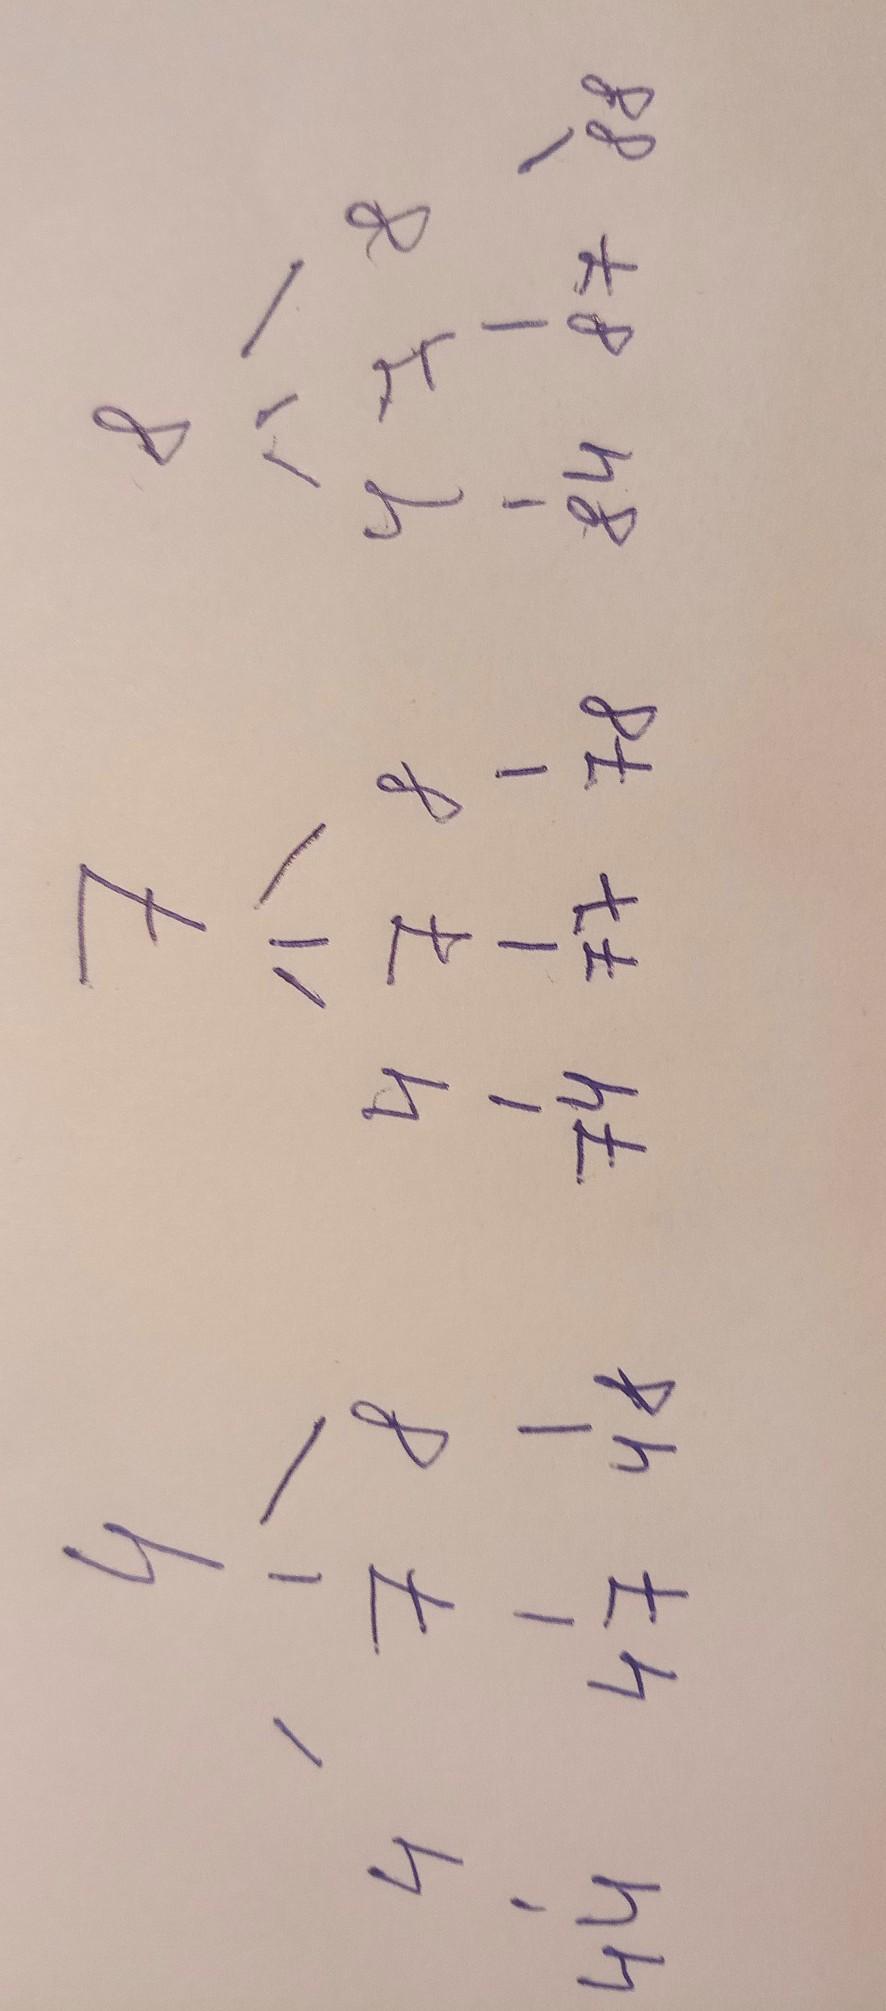 4 7 8
4 7 8 4 7 8 4 7 8
44 47 48 74 77 78 84 87 88